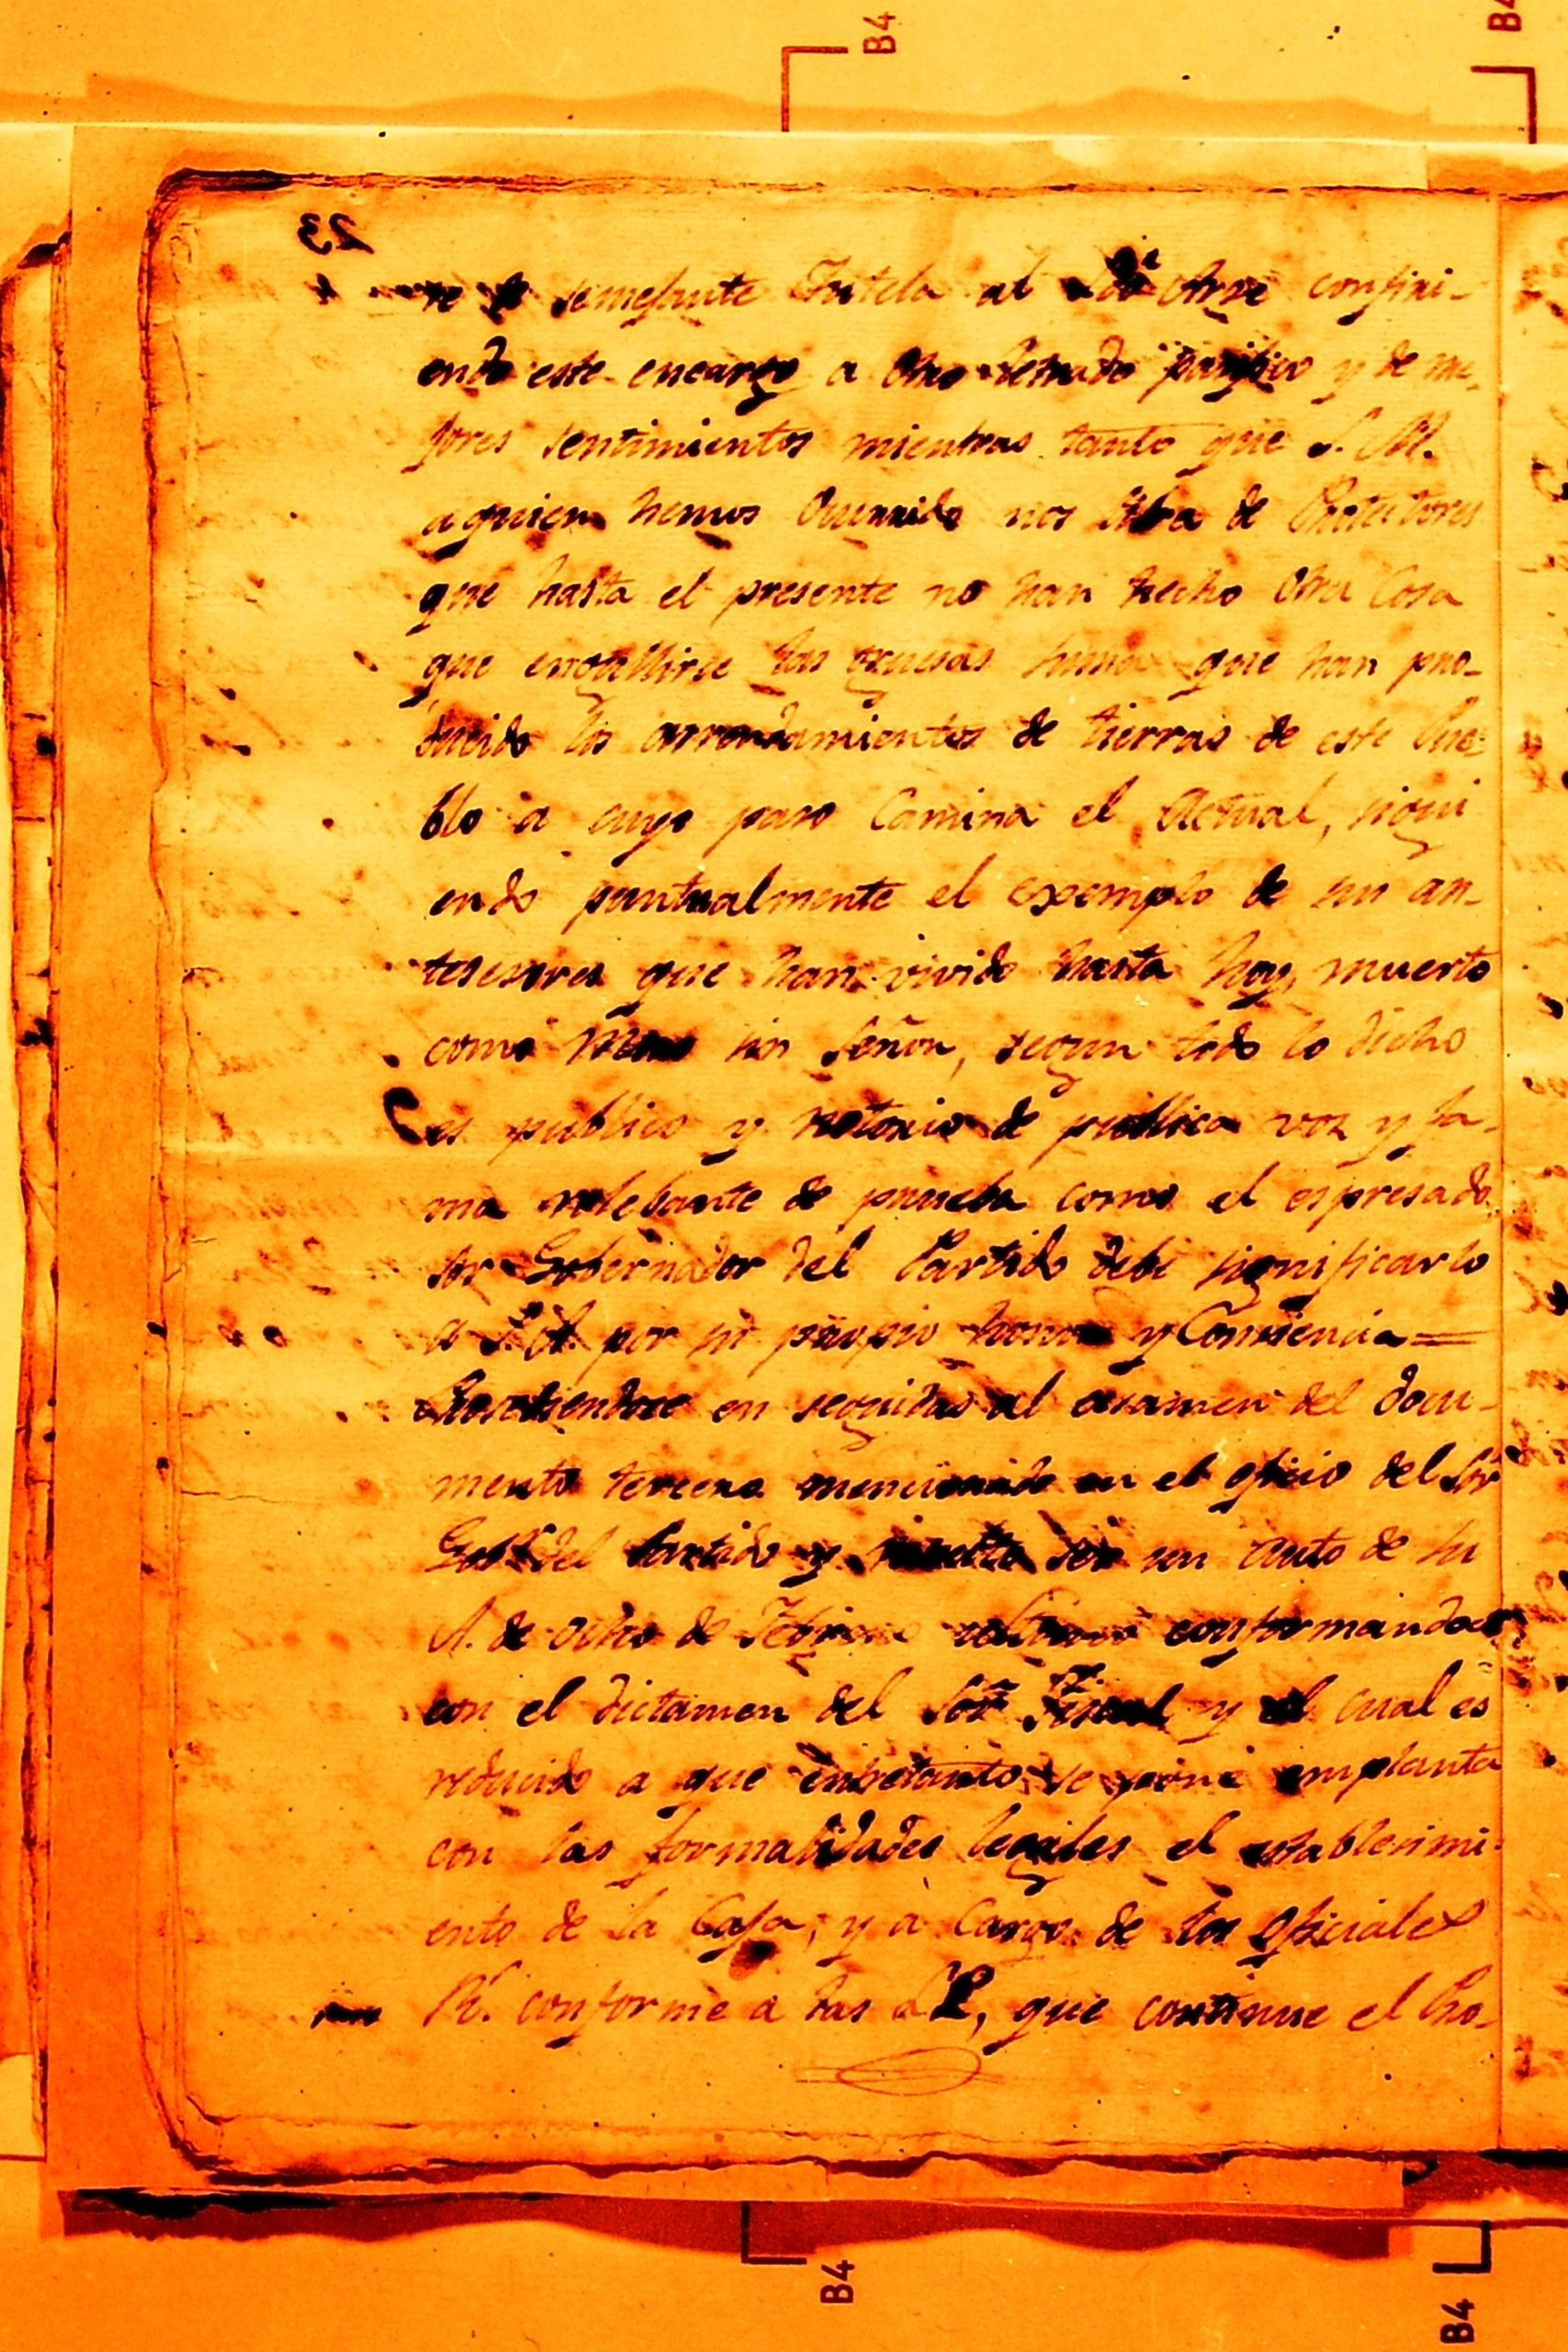 B4
B4
23
re semejante Tutela al Arze confiri-
endo este encargo a otro Letrado pacifico y de me-
jores sentimientos mientras tanto que S. M.
aquien hemos Ocurrido nos libra de Protectores
que hasta el presente no han hecho Otra Cosa
que engullirse las gruesas sumas que han pro-
ducido los arrendamientos de tierras de este Pue-
blo a cuyo paso Camina el Actual, sigui
endo puntualmente el exemplo de sus an-
tesesores que han vivido hasta hoy, muerto
como sin Señor, segun todo lo dicho
es publico y notorio de publica voz y fa-
ma relebante de prueba como el espresado
Sor Gobernador del Partido debe significarlo
a S. A. por su propio honor y Consiencia =
en seguidas al examen del docu-
mento tercero mencionado en el oficio del Sor
Gobr del Partido y resulta ser un auto de su
A. de ocho de Febrero conformandose
con el dictamen del Sor Fiscal y el cual es
reducido a que entretanto se pone emplanta
con las formalidades legales el establesimi-
ento de la Caja, y a Cargo de los Oficiales
Rs. conforme a las LL, que continue el Pro-
B4
B4